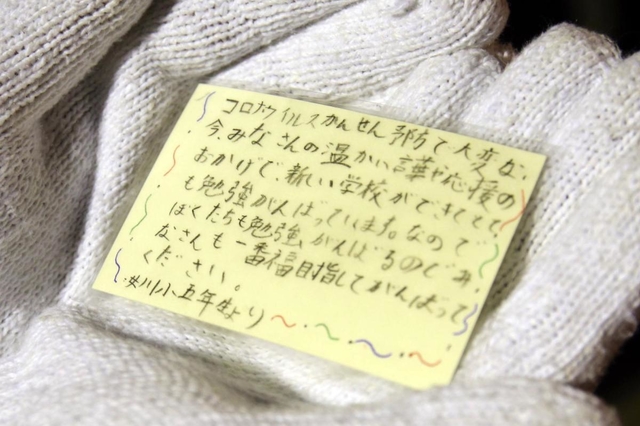 コロナウイルスかんせん予防で大変な、
今、みなさんの温かい言葉や応援の
おかげで、新しい学校ができてとて
も勉強がんばっています。なので
ぼくたちも勉強、がんばるのでみ
なさんも一番福目指してがんばって
ください。
女川小五年生より